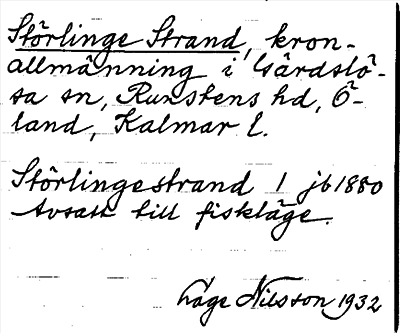 Störlinge Strand, kron-
allmänning i Gärdslö-
sa sn, Runstens hd, Ö-
land, Kalmar l.
Störlingestrand 1 jb 1880
Avsatt till fiskläge.
Åge Nilsson 1932